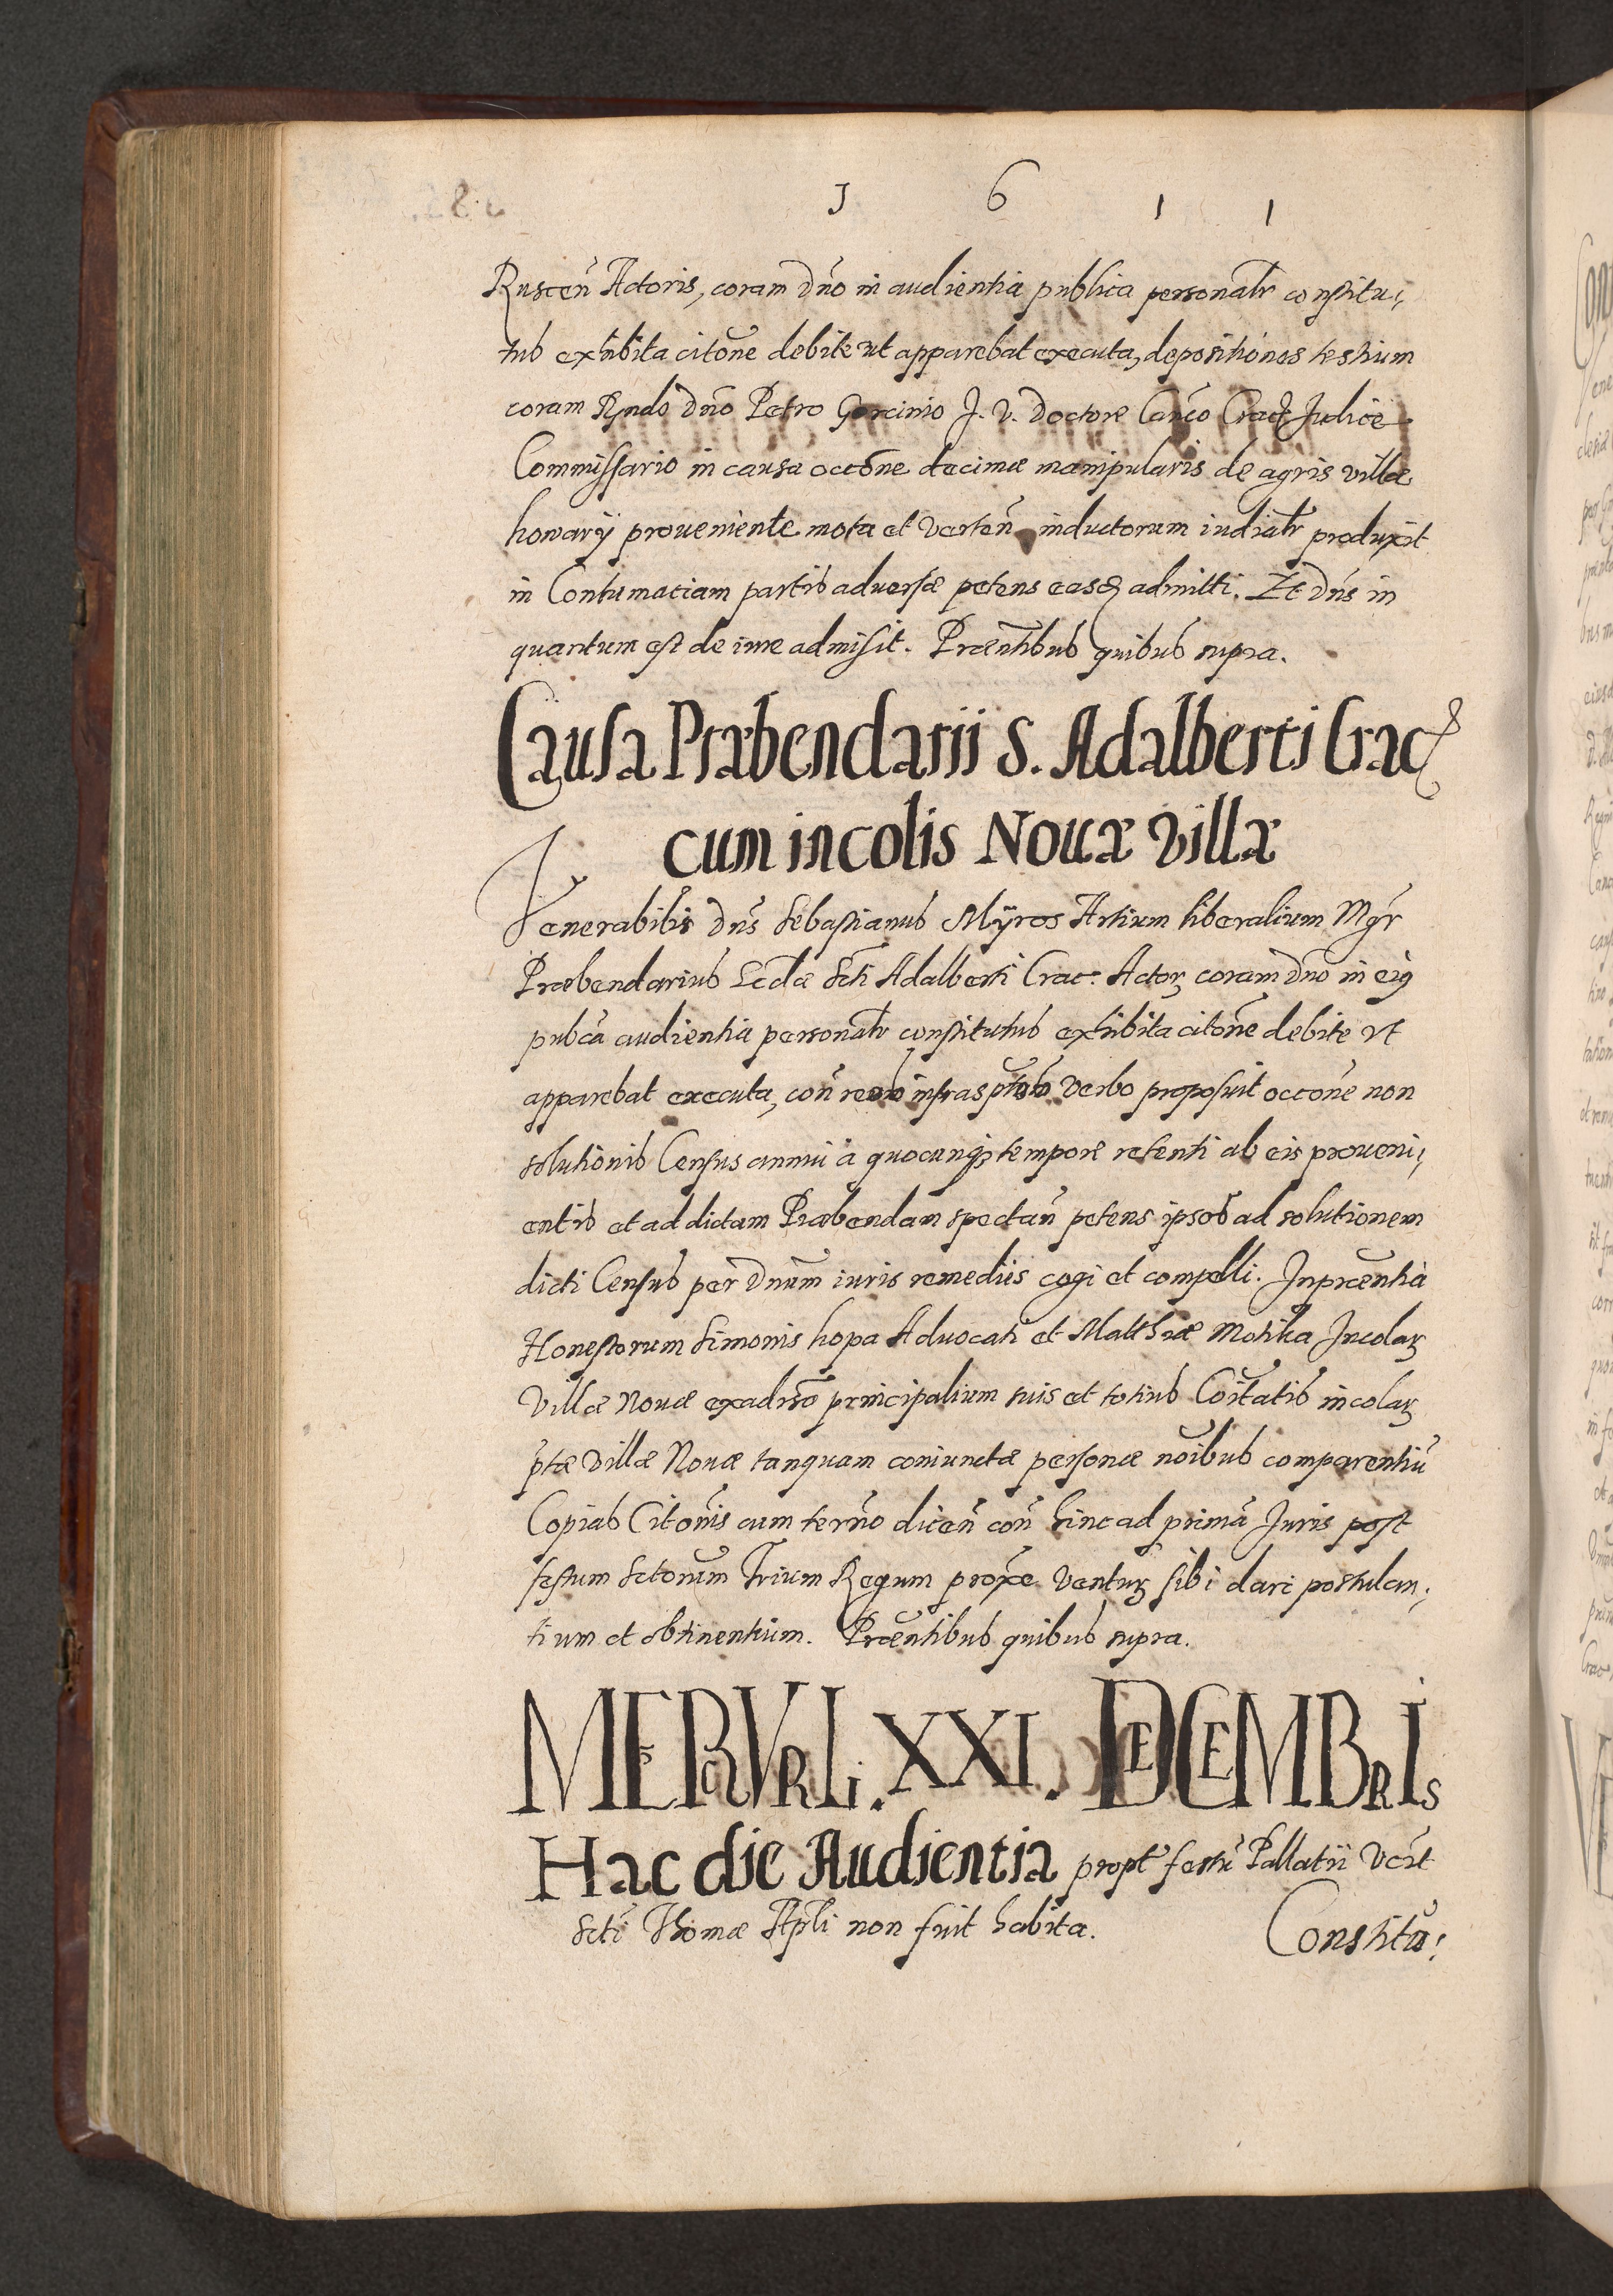 1 6 1 1
Ruscen̄ Actoris, coram dn̄o in audientia publica personalr̄ constitu¡
tus exhibita citōne debite ut apparebat executa, depositiones testium
coram Rn̄do dn̄o Petro Gorcinio J. V. Doctore Can̄co Cracꝭ Judice
Commissario in causa occōne decimæ manipularis de agris villæ
howarÿ proueniente mota et verten̄ inductorum iudialr̄ produxit
in Contumatiam partis aduersæ petens easdꝫ admitti. Et dn̄s in
quantum est de iure admisit. Præn̄tibus quibus supra.
Causa Præbendarii S. Adalberti Cracꝭ
cum incolis Nouæ Villæ
Venerabilis dn̄s Sebastianus Mÿros Artium liberalium Mgr̄
Præbendarius Ecclæ Scti Adalberti Crac: Actorꝫ coram dn̄o in eiꝰ
pubca audientia personalr̄ constitutus exhibita citōne debite vt
apparebat executa, con̄ reos infrasptos verbo proposuit occōne non
solutionis Census annui à quocunqꝫ tempore retenti ab eis proueni¡
entis et ad dictam Præbendam spectan̄ petens ipsos ad solutionem
dicti Census per Dnūm iuris remediis cogi et compelli. In præn̄tia
Honestorum Simonis hopa Aduocati et Matthiæ Motika Incolarꝫ
Villæ Nouæ ex aduso principalium suis et totius Coītatis incolarꝫ
ptæ Villæ Nouæ tanquam coniunctæ personæ noībus comparentiū
Copias Citōnis cum tern̄o dicen̄ con̄ hinc ad primā Juris post
festum Sctorum Trium Regum proxē venturꝫ sibi dari postulan¡
tium et obtinentium. Præn̄tibus quibus supra.
MERCURLi. XXI. DECEMBRIS
Hac die Audientia propt festū Pallatii Vēit
Scti Thomæ Apl̄i non fuit habita. Constitu¡